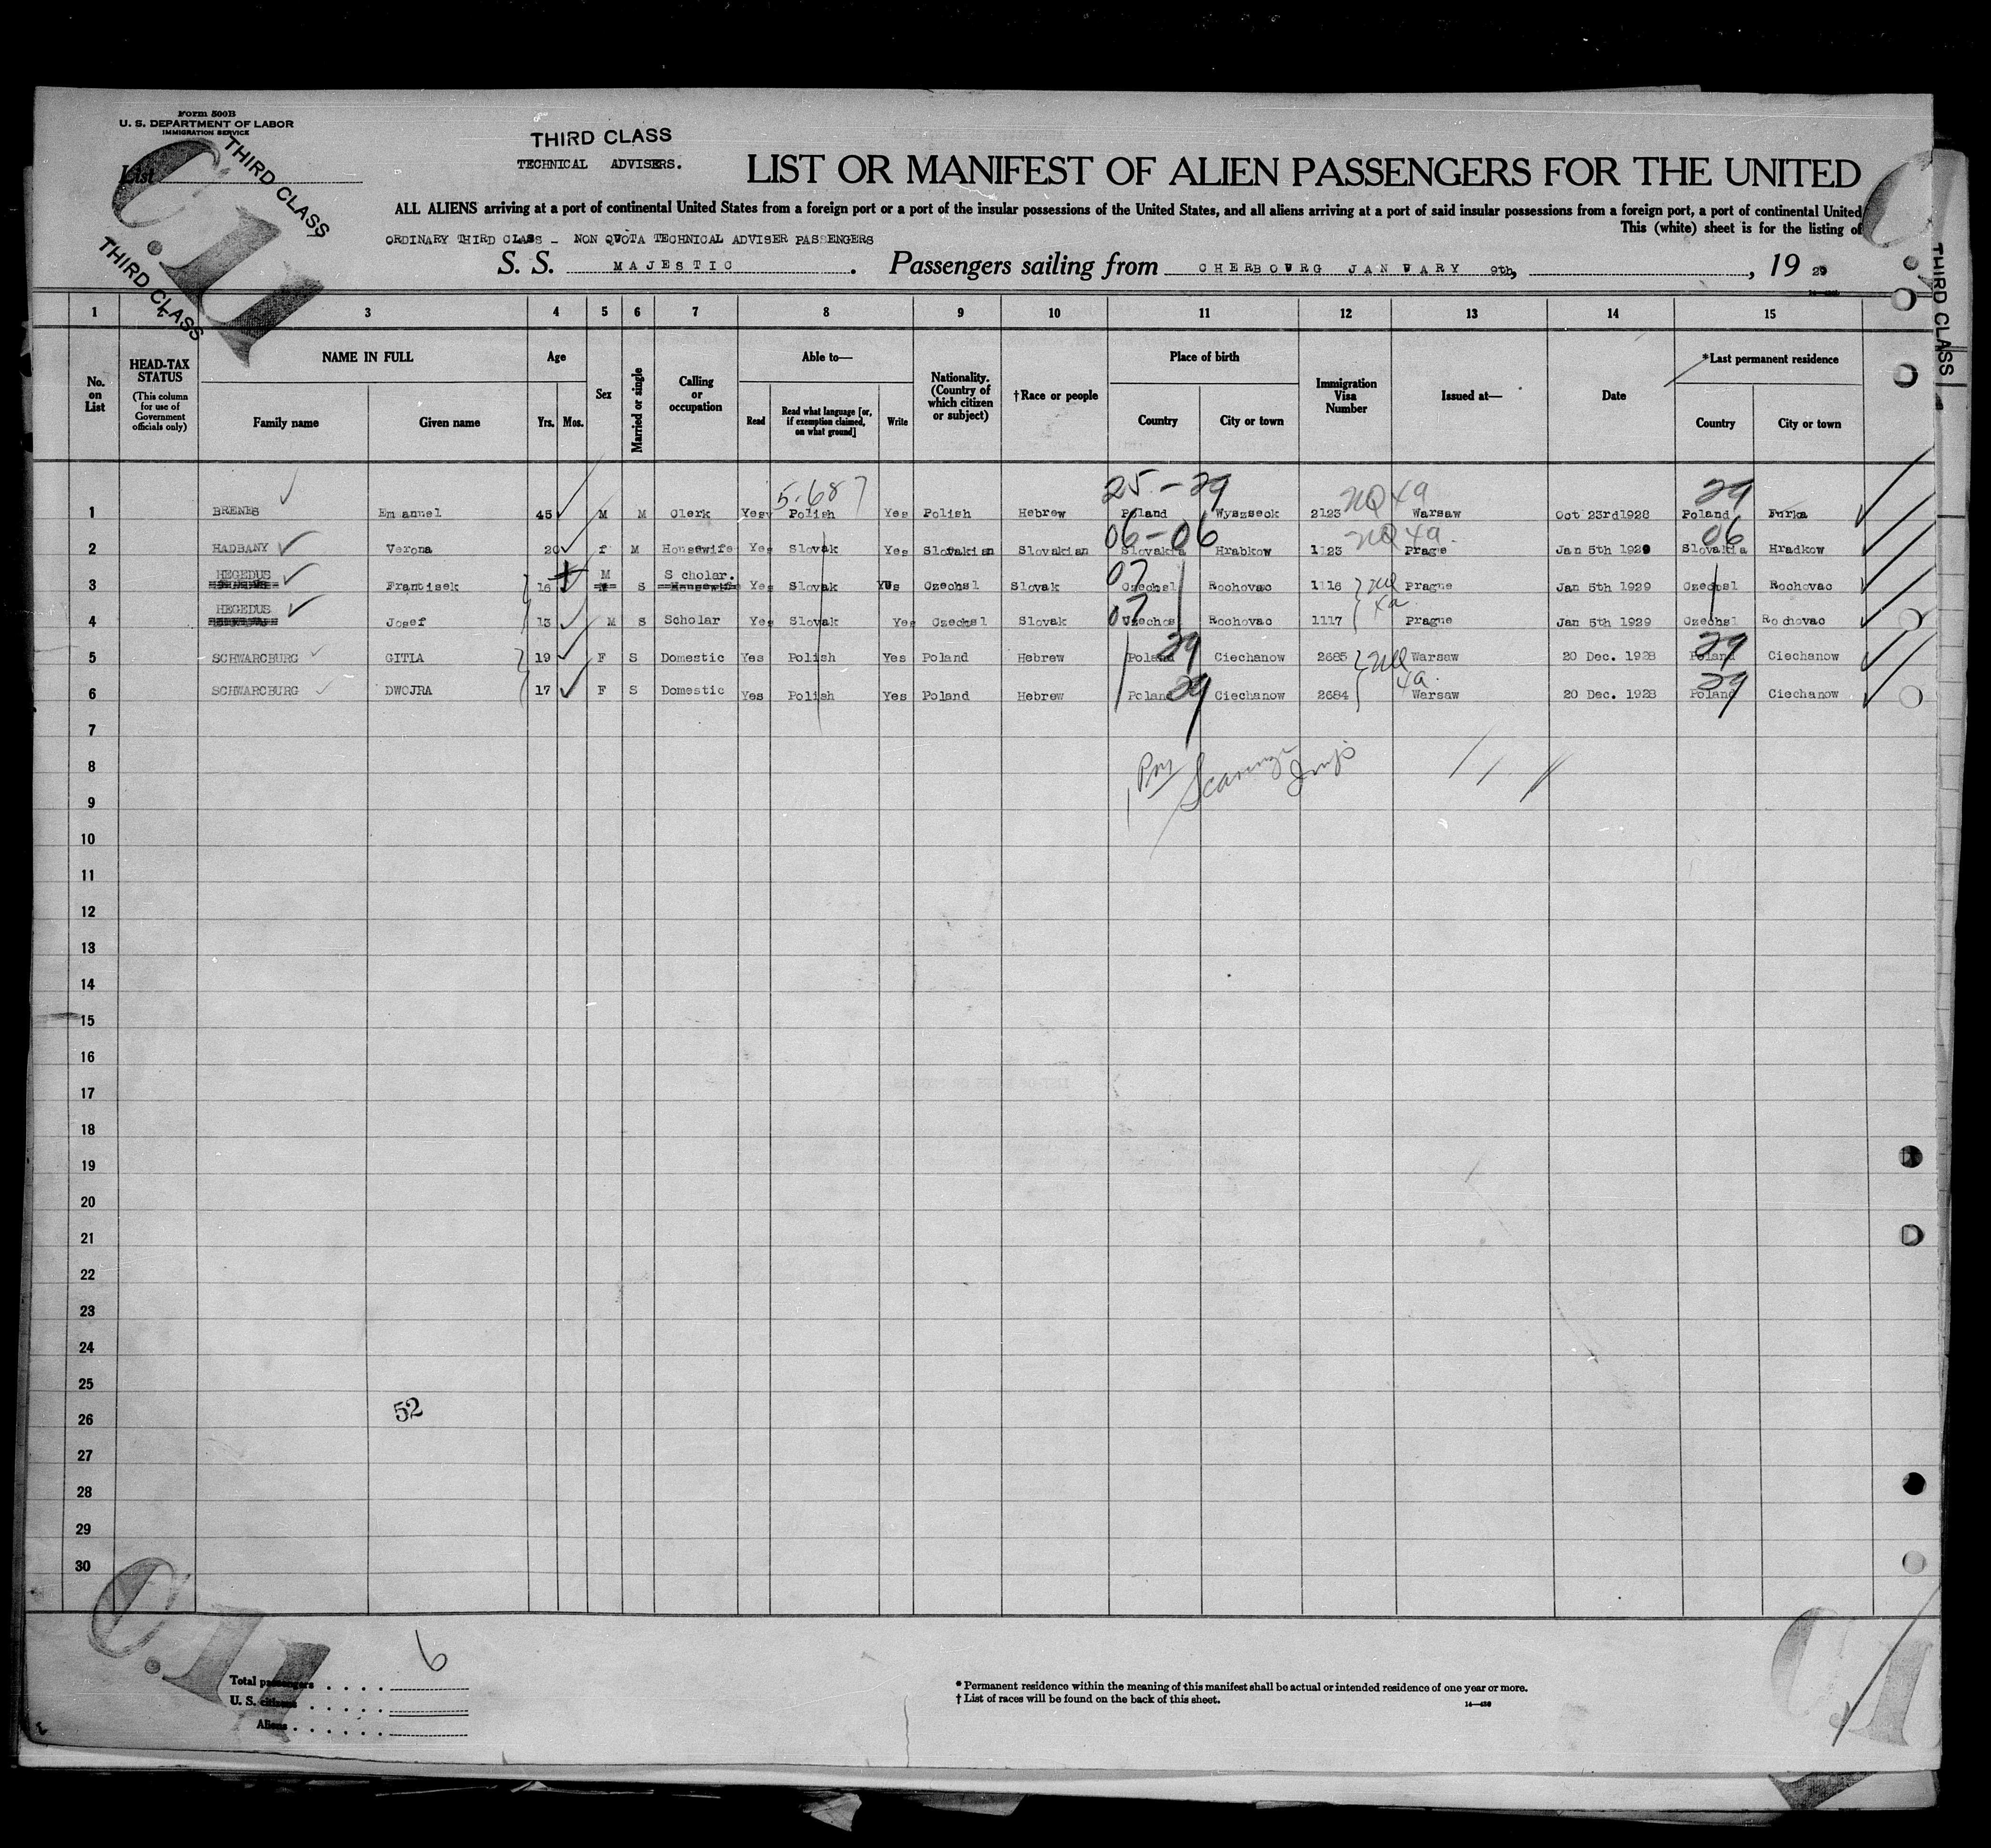 Form 500B
U. S. DEPARTMENT OF LABOR
IMMIGRATION SERVICE
List
THIRD CLASS
THIRD CLASS
C.U
THIRD CLASS
TECHNICAL ADVISERS.
LIST OR MANIFEST OF ALIEN PASSENGERS FOR THE UNITED
ALL ALIENS arriving at a port of continental United States from a foreign port or a port of the insular possessions of the United States, and all aliens arriving at a port of said insular possessions from a foreign port, a port of continental United
This (white) sheet is for the listing of
ORDINARY THIRD CLASS - NON QUOTA TECHNICAL ADVISER PASSENGERS
S. S. MAJESTIC. Passengers sailing from CHERBOURG JANUARY 9th, , 19 29
THIRD CLASS
1 2 3 4 5 6 7 8 9 10 11 12 13 14 15
No. on List
HEAD-TAX STATUS
(This column for use of Government officials only)
NAME IN FULL
Family name Given name
Age
Yrs. Mos.
Sex
Married or single
Calling or occupation
Able to—
Read
Read what language [or, if exemption claimed, on what ground]
Write
Nationality. (Country of which citizen or subject)
†Race or people
Place of birth
Country City or town
Immigration Visa Number
Issued at—
Date
*Last permanent residence
Country City or town
5-687 25-29 NQ 4a 29
1 BRENES Emanuel 45 M M Clerk Yes Polish Yes Polish Hebrew Poland Wyszseck 2123 Warsaw Oct 23rd1928 Poland Furka
06-06 NQ 4a. 06
2 HADBANY Verona 20 f M Housewife Yes Slovak Yes Slovakian Slovakian Slovakia Hrabkow 1123 Prague Jan 5th 1929 Slovakia Hradkow
HEGEDUS M Scholar. 07
3 Frantisek 16 S Housewife Yes Slovak Yes Czechsl Slovak Czechosl Rochovac 1116 NQ Prague Jan 5th 1929 Czechosl Rochovac
HEGEDUS 07 4a
4 Josef 13 M S Scholar Yes Slovak Yes Czechsl Slovak Czechos Rochovac 1117 Prague Jan 5th 1929 Czechsl Rochovac
29 29
5 SCHWARCBURG GITLA 19 F S Domestic Yes Polish Yes Poland Hebrew Poland Ciechanow 2685 NQ Warsaw 20 Dec. 1928 Poland Ciechanow
29 4a. 29
6 SCHWARCBURG DWOJRA 17 F S Domestic Yes Polish Yes Poland Hebrew Poland Ciechanow 2684 Warsaw 20 Dec. 1928 Poland Ciechanow
7
8
9
10
11
12
13
14
15
16
17
18
19
20
21
22
23
24
25
26
52
27
28
29
30
6
Total passengers
U. S. citizens
Aliens
* Permanent residence within the meaning of this manifest shall be actual or intended residence of one year or more.
† List of races will be found on the back of this sheet.